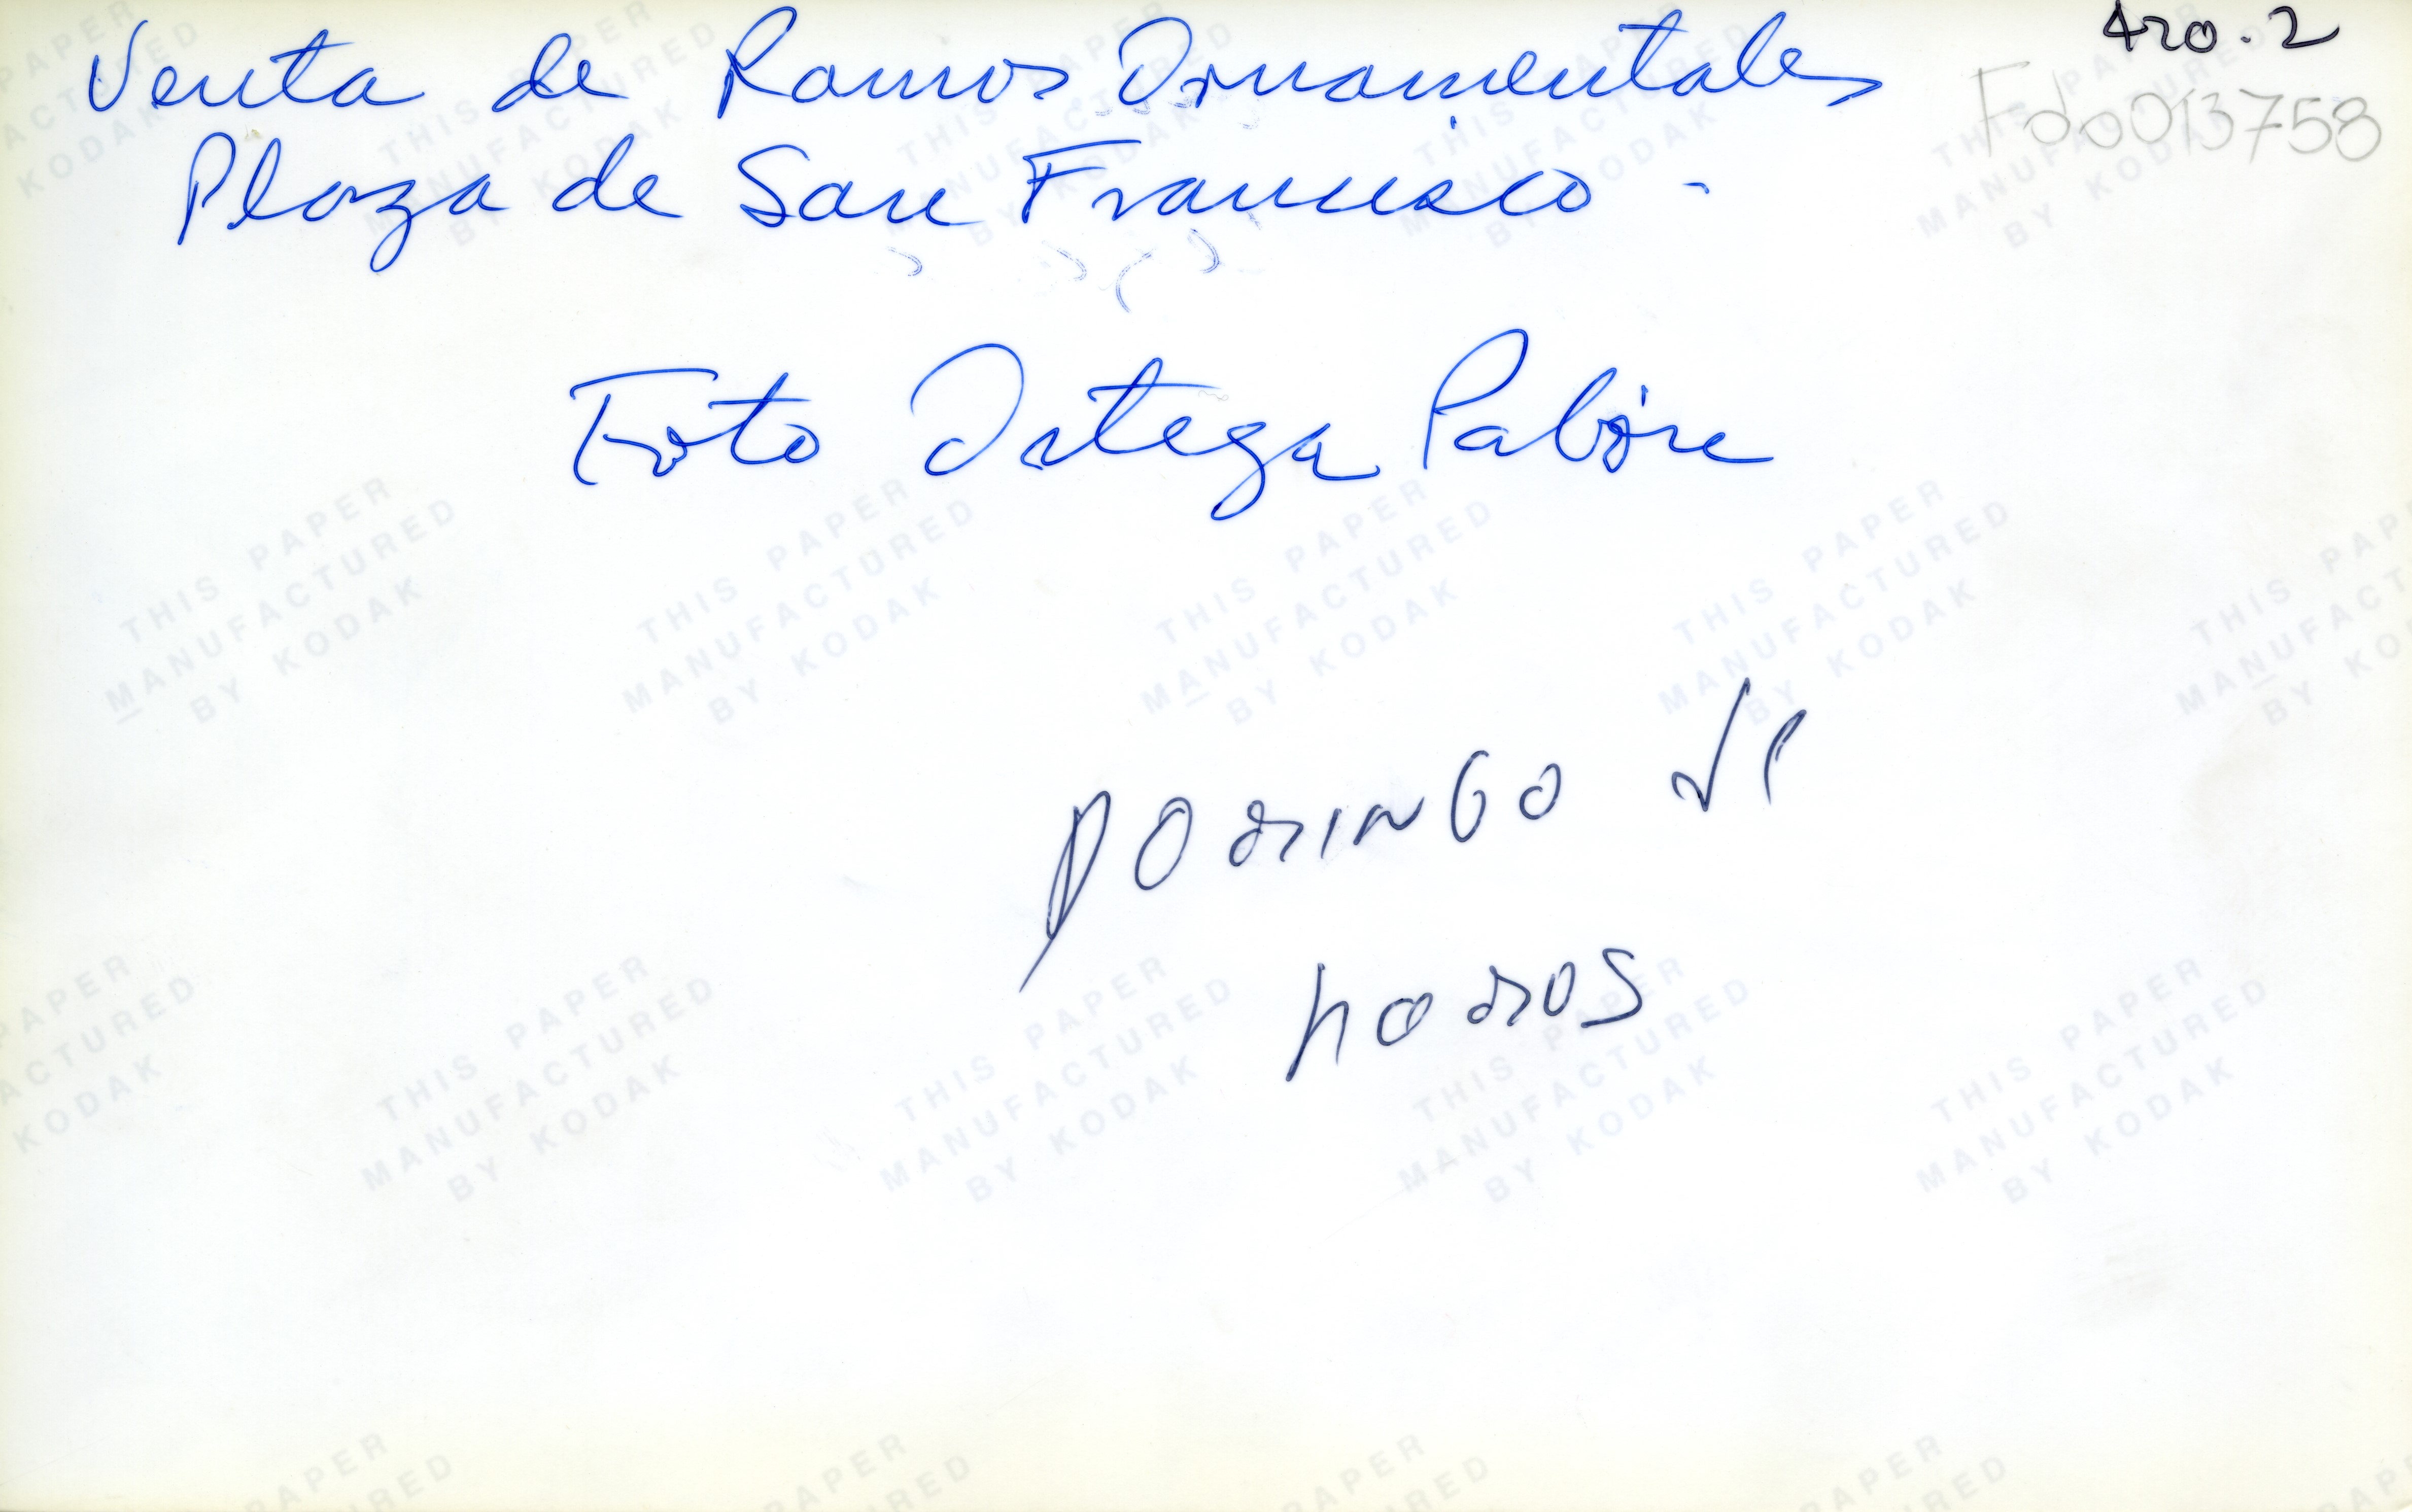 420.2
Fdo013758
Venta de Ramos Ornamentales
Plaza de San Francisco -
Foto Ortega Pabón
DOMINGO de
RAMOS
THIS PAPER
MANUFACTURED
BY KODAK